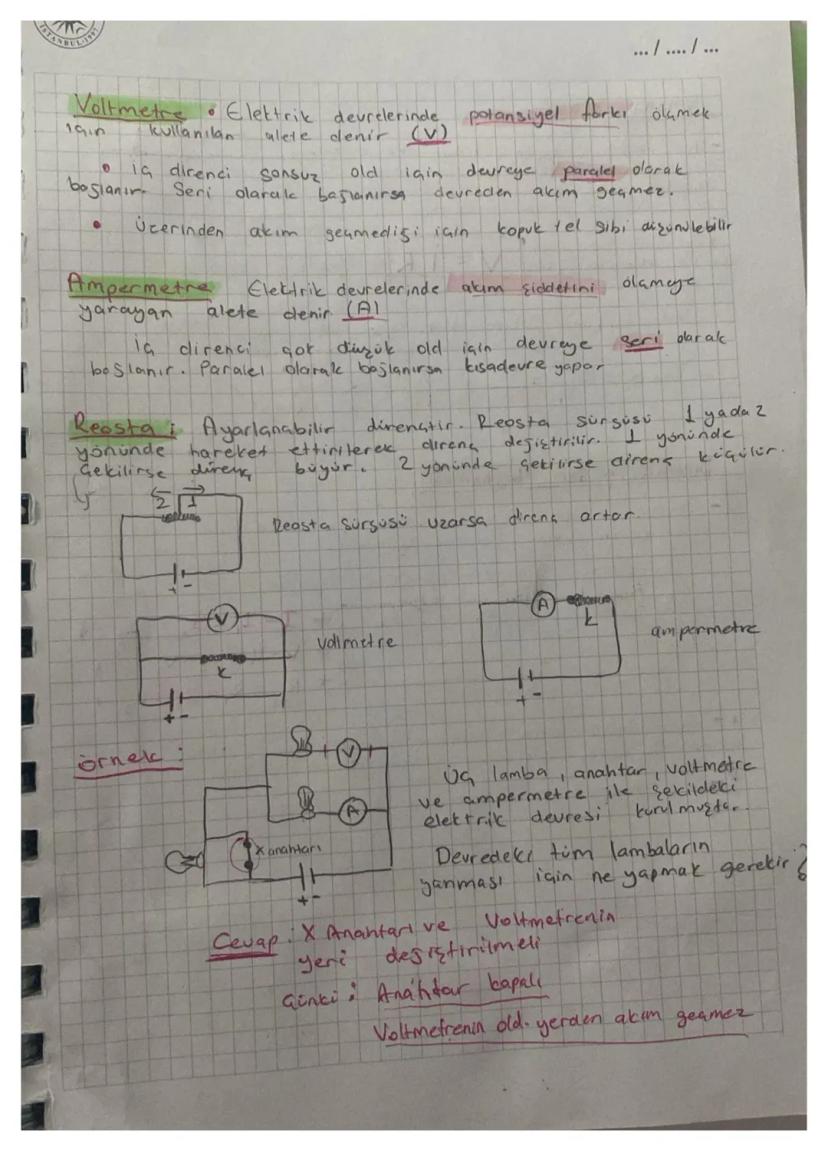 İSTANBUL-1997
... / .... / ...
Voltmetre • Elektrik devrelerinde potansiyel farkı ölçmek
için kullanılan alete denir (V)
• iç direnci sonsuz old için devreye paralel olarak
bağlanır. Seri olarak bağlanırsa devreden akım geçmez.
• Üzerinden akım geçmediği için kopuk tel gibi düşünülebilir
Ampermetre Elektrik devrelerinde akım şiddetini ölçmeye
yarayan alete denir (A)
iç direnci çok düşük old için devreye seri olarak
bağlanır. Paralel olarak bağlanırsa kısadevre yapar
Reosta : Ayarlanabilir dirençtir. Reosta sürgüsü 1 yada 2
yönünde hareket ettirilerek direnç değiştirilir. 1 yönünde
çekilirse direnç büyür. 2 yönünde çekilirse direnç küçülür.
2 1
Reosta sürgüsü uzarsa direnç artar.
+ -
V
voltmetre
K
+ -
A
K
ampermetre
+ -
örnek :
V
A
X anahtarı
+ -
Üç lamba, anahtar, voltmetre
ve ampermetre ile şekildeki
elektrik devresi kurulmuştur.
Devredeki tüm lambaların
yanması için ne yapmak gerekir?
Cevap : X Anahtarı ve Voltmetrenin
yeri değiştirilmeli
Çünkü : Anahtar kapalı
Voltmetrenin old. yerden akım geçmez